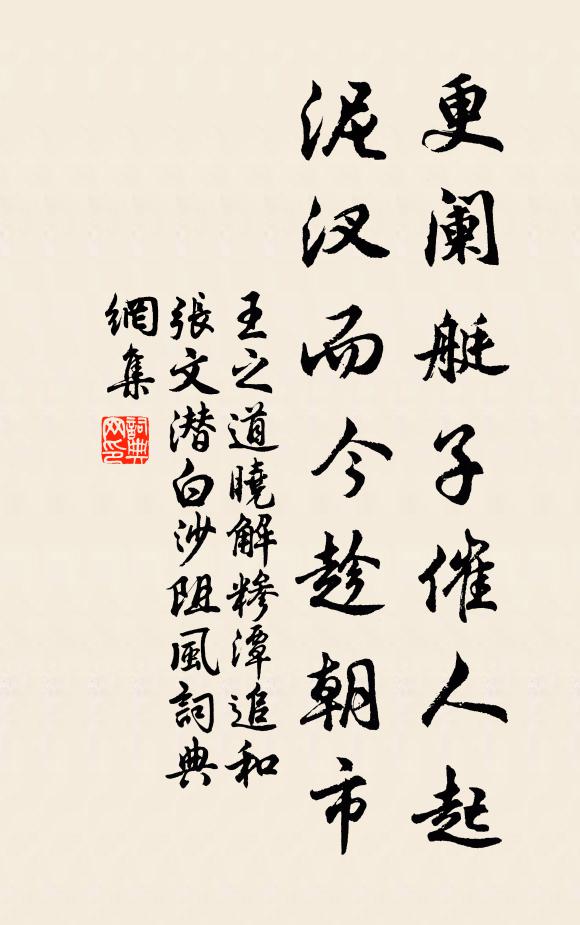 更阑艇子催人起
泥汊而今趁朝市
王之道曉解糝潭追和
張文潜白沙阻風詞典
網集
詞典
网印